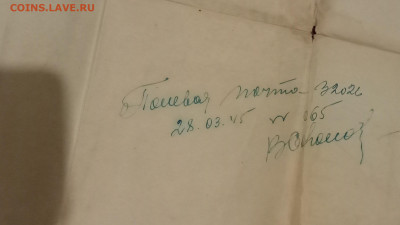 COINS.ЛАВЕ.RU
Полевая почта 32026
28.03.45 w 165